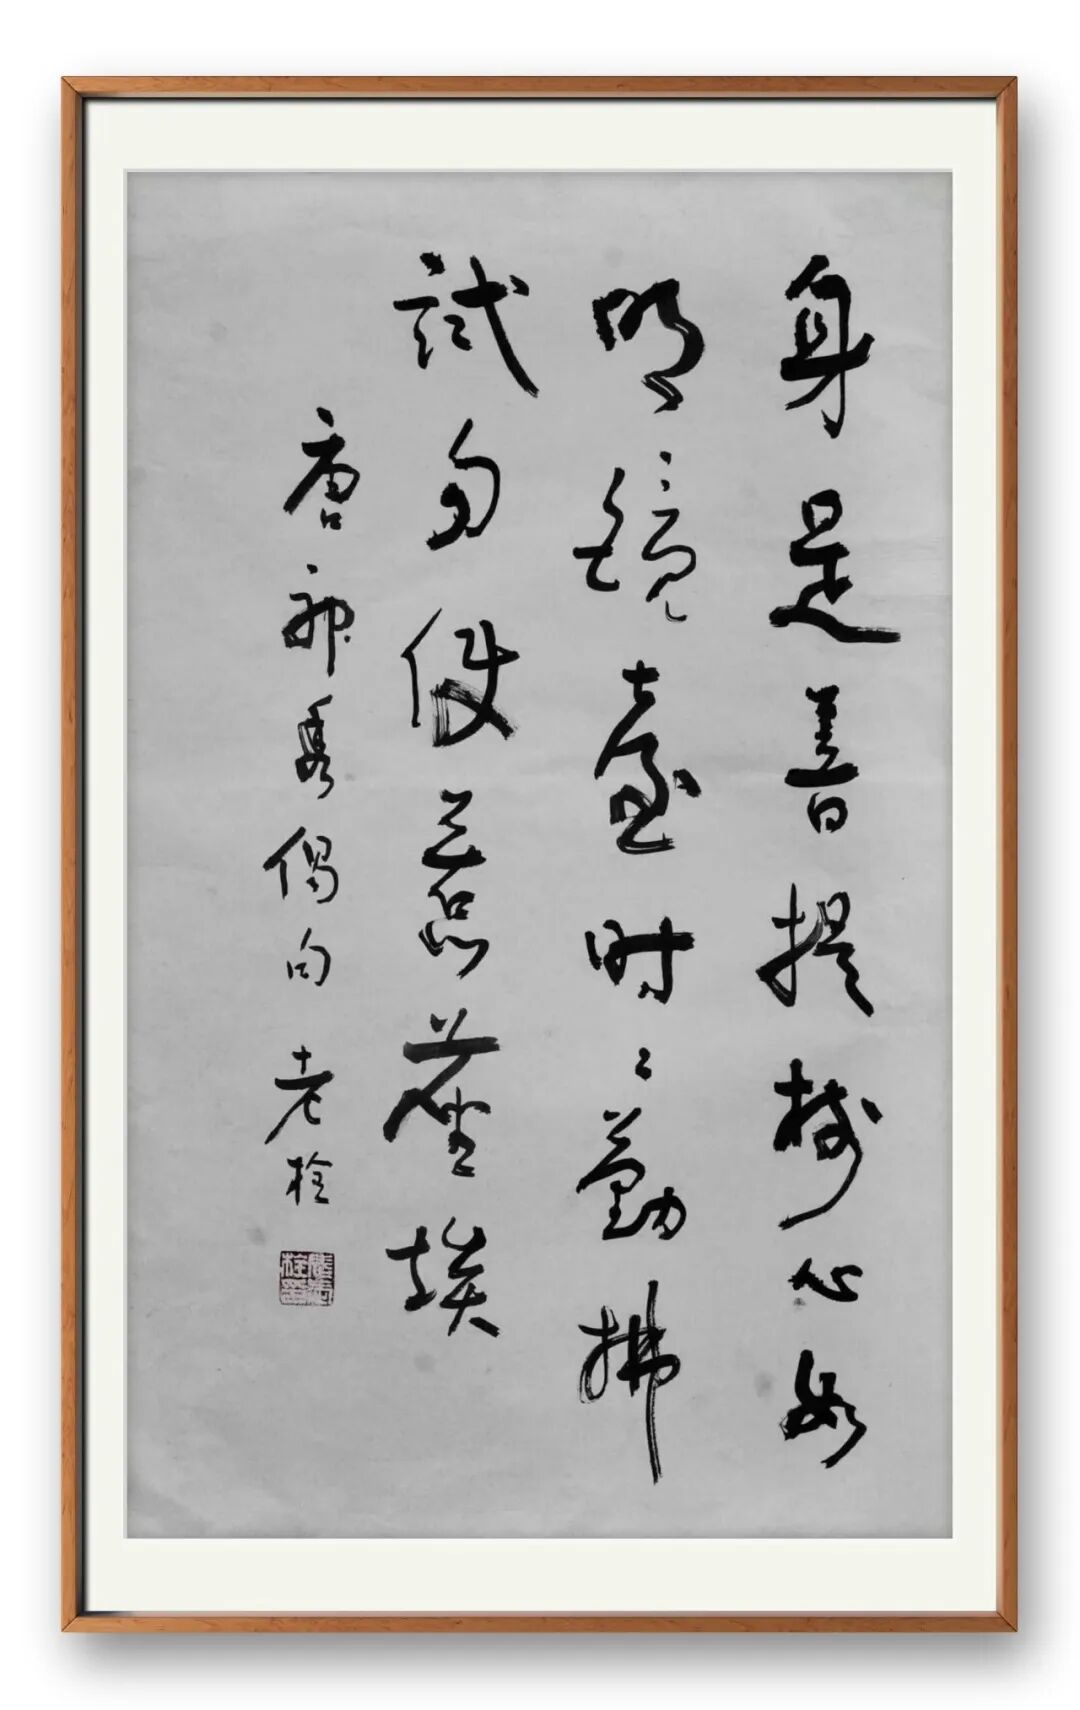 身是菩提樹心如
明鏡臺时〻勤拂
試勿使惹塵埃
唐神秀偈句 老栓